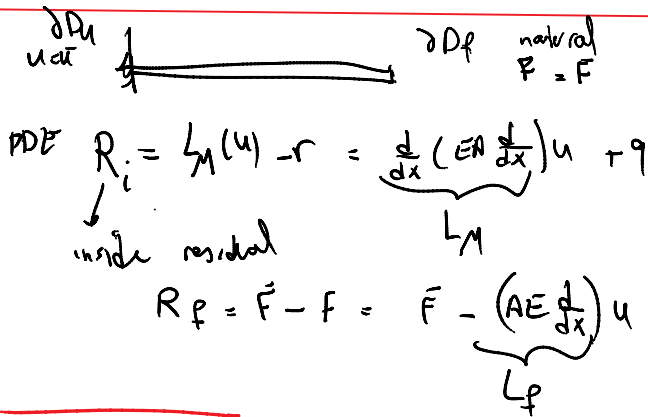 ∂Du ∂Df natural
u = ū F = F̄
PDE Ri = LM(u) - r = d/dx (EA d/dx) u + q
LM
inside residual
Rf = F̄ - F = F̄ - (AE d/dx) u
Lf